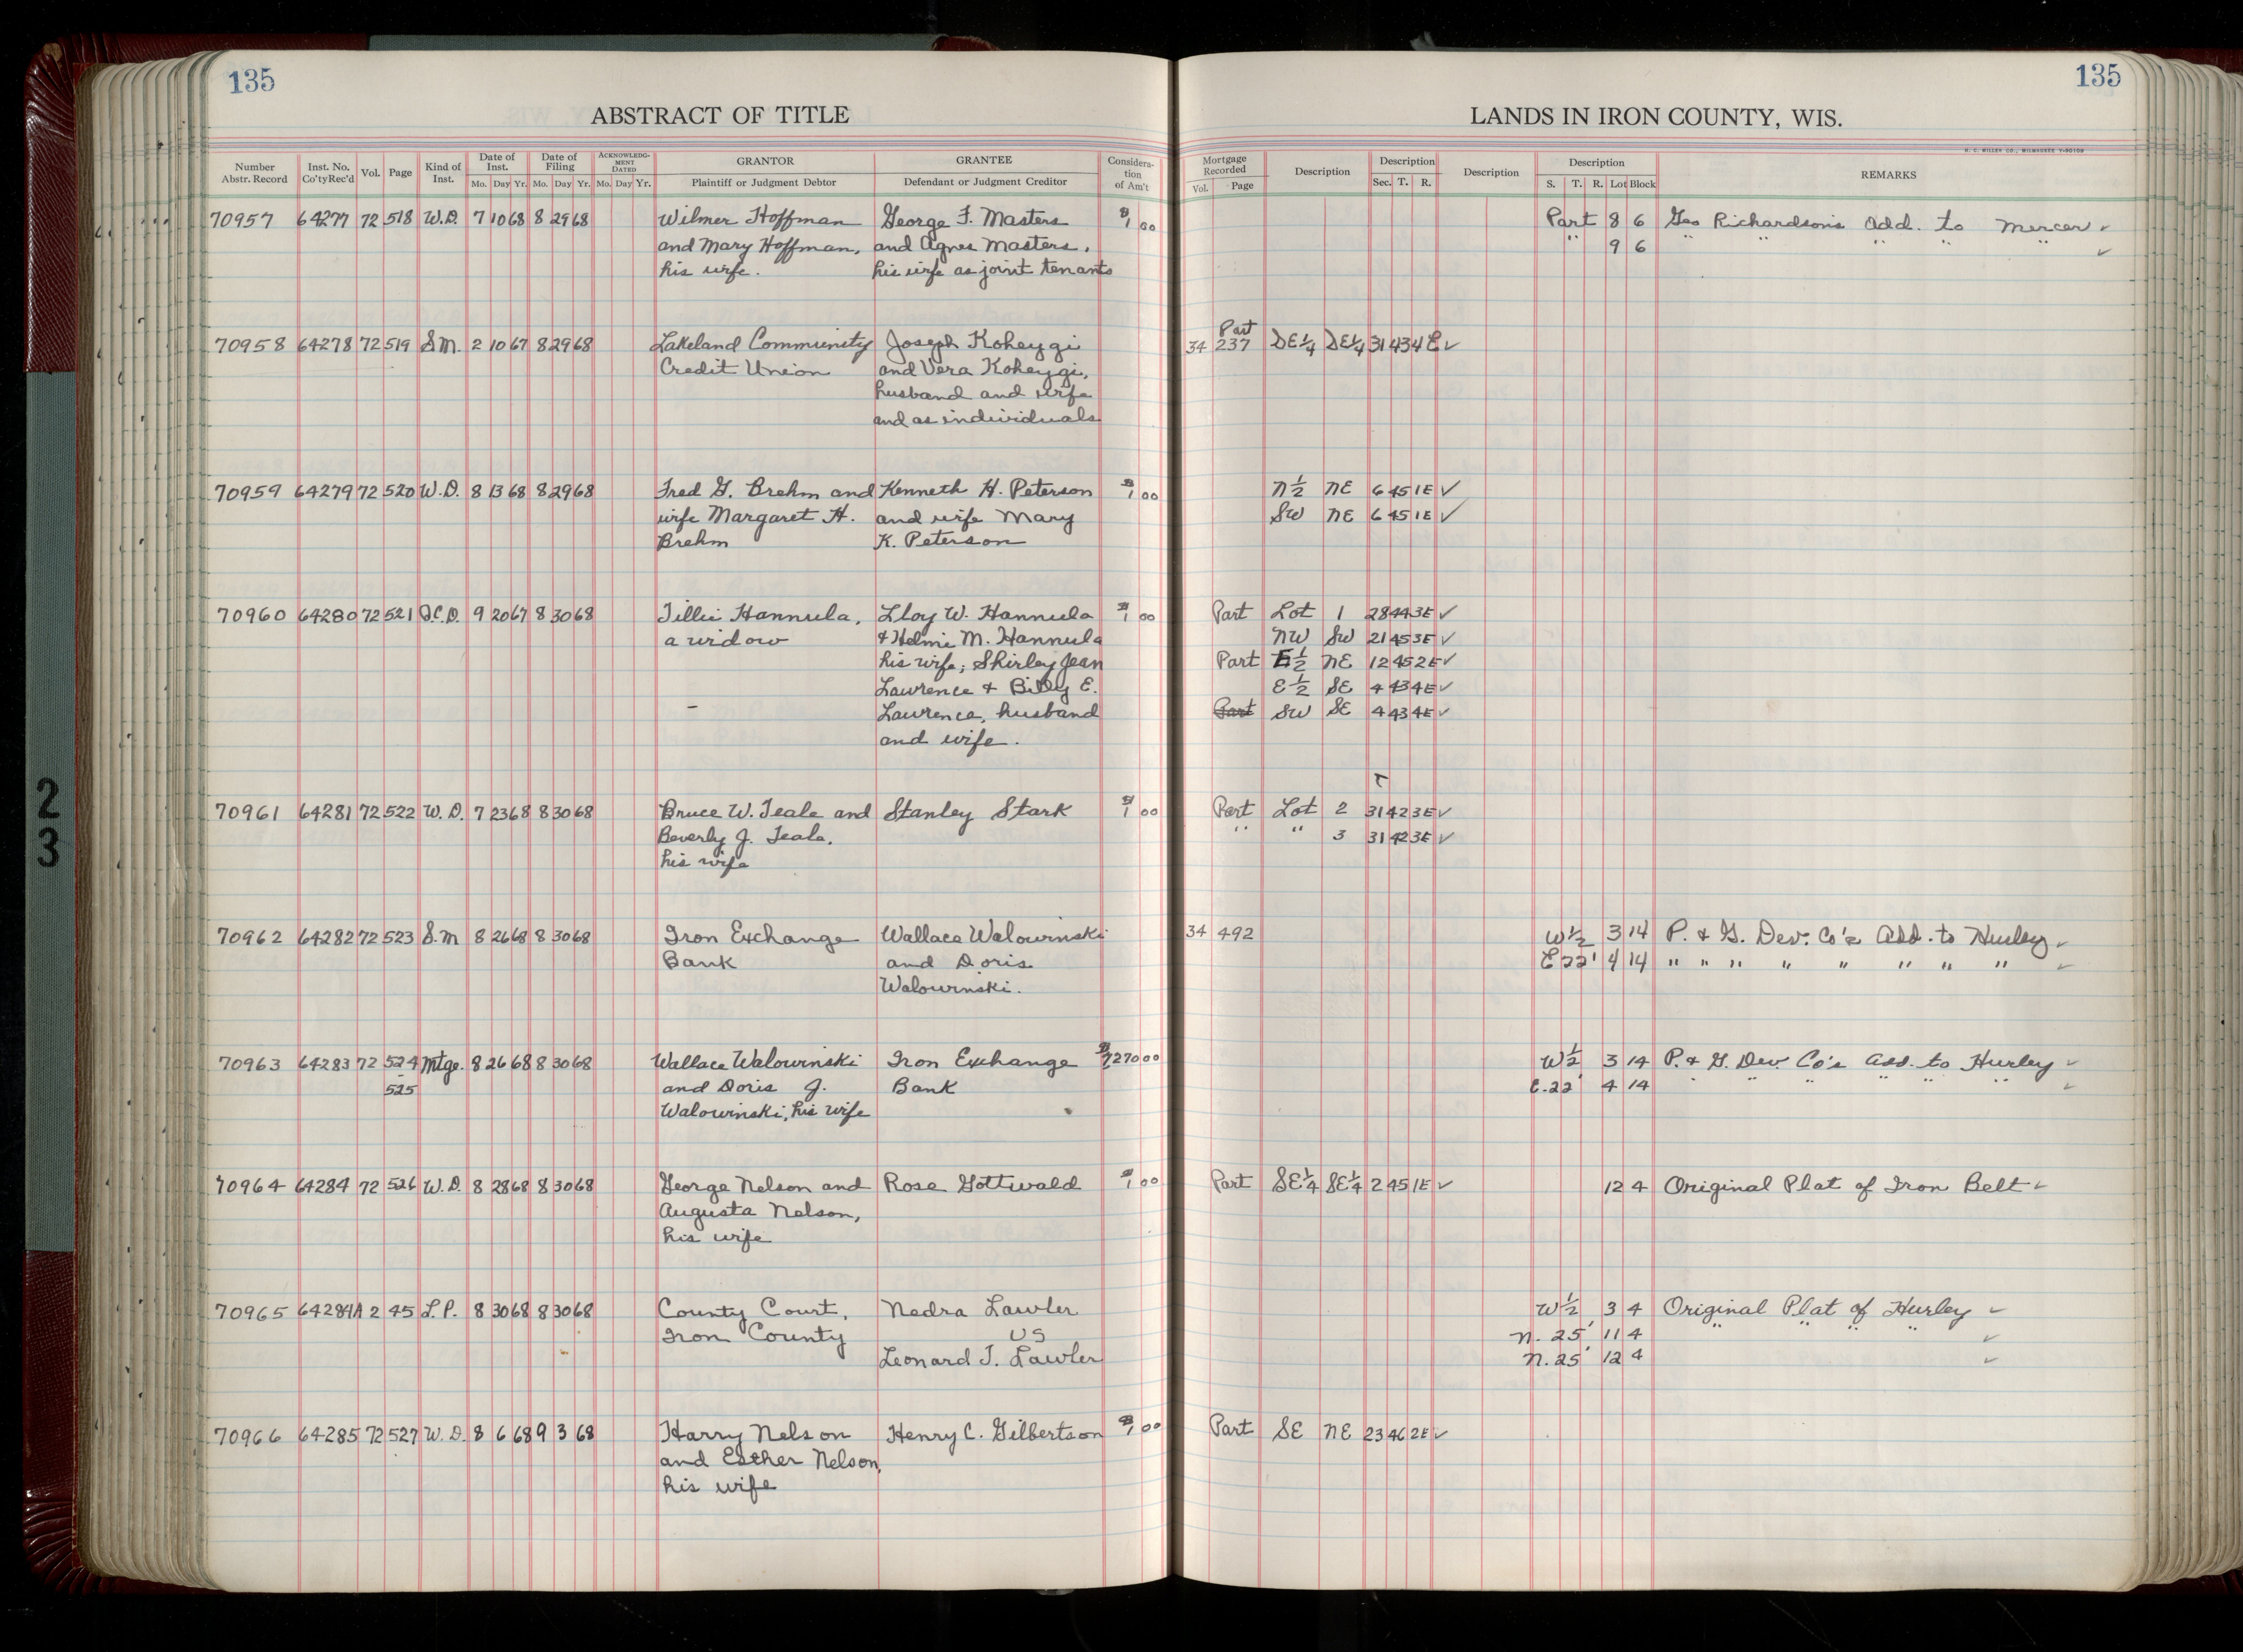 135
135
ABSTRACT OF TITLE
LANDS IN IRON COUNTY, WIS.
H. C. MILLER CO., MILWAUKEE
Number Abstr. Record Inst. No. Co'ty Rec'd Vol. Page Kind of Inst. Date of Inst. Mo. Day Yr. Date of Filing Mo. Day Yr. ACKNOWLEDGMENT DATED Mo. Day Yr. GRANTOR Plaintiff or Judgment Debtor GRANTEE Defendant or Judgment Creditor Consideration of Am't
Mortgage Recorded Vol. Page Description Description Sec. T. R. Description Description S. T. R. Lot Block REMARKS
70957 64277 72 518 W.D. 7 10 68 8 29 68 Wilmer Hoffman George F. Masters $1 00 Part 8 6 Geo Richardson's Add. to Mercer ✓
and Mary Hoffman, and Agnes Masters, " 9 6 " " " " " ✓
his wife. his wife as joint tenants
Part
70958 64278 72 519 S.M. 2 10 67 8 29 68 Lakeland Community Joseph Koheygi 34 237 SE¼ SE¼ 31 43 4E ✓
Credit Union and Vera Koheygi,
husband and wife
and as individuals
70959 64279 72 520 W.D. 8 13 68 8 29 68 Fred G. Brehm and Kenneth H. Peterson $1 00 N½ NE 6 45 1E ✓
wife Margaret H. and wife Mary SW NE 6 45 1E ✓
Brehm K. Peterson
70960 64280 72 521 Q.C.D. 9 20 67 8 30 68 Tillie Hannula, Lloy W. Hannula $1 00 Part Lot 1 28 44 3E ✓
a widow & Helmi M. Hannula NW SW 21 45 3E ✓
his wife; Shirley Jean Part E½ NE 12 45 2E ✓
Lawrence & Billy E. E½ SE 4 43 4E ✓
Lawrence, husband Part SW SE 4 43 4E ✓
and wife.
70961 64281 72 522 W.D. 7 23 68 8 30 68 Bruce W. Teale and Stanley Stark $1 00 Part Lot 2 31 42 3E ✓
Beverly J. Teale, " " 3 31 42 3E ✓
his wife
70962 64282 72 523 S.M 8 26 68 8 30 68 Iron Exchange Wallace Walowinski 34 492 W½ 3 14 P. & G. Dev. Co's Add. to Hurley ✓
Bank and Doris E 22' 4 14 " " " " " " " " ✓
Walowinski.
70963 64283 72 524 Mtge. 8 26 68 8 30 68 Wallace Walowinski Iron Exchange $7270 00 W½ 3 14 P. & G. Dev. Co's Add. to Hurley ✓
- 525 and Doris J. Bank E. 22' 4 14 " " " " " " ✓
Walowinski, his wife
70964 64284 72 526 W.D. 8 28 68 8 30 68 George Nelson and Rose Gottwald $1 00 Part SE¼ SE¼ 2 45 1E ✓ 12 4 Original Plat of Iron Belt ✓
Augusta Nelson,
his wife
70965 64284A 2 45 L.P. 8 30 68 8 30 68 County Court, Nedra Lawler W½ 3 4 Original Plat of Hurley ✓
Iron County VS N. 25' 11 4 " " " " ✓
Leonard T. Lawler N. 25' 12 4 ✓
70966 64285 72 527 W.D. 8 6 68 9 3 68 Harry Nelson Henry C. Gilbertson $1 00 Part SE NE 23 46 2E ✓
and Esther Nelson,
his wife
2
3